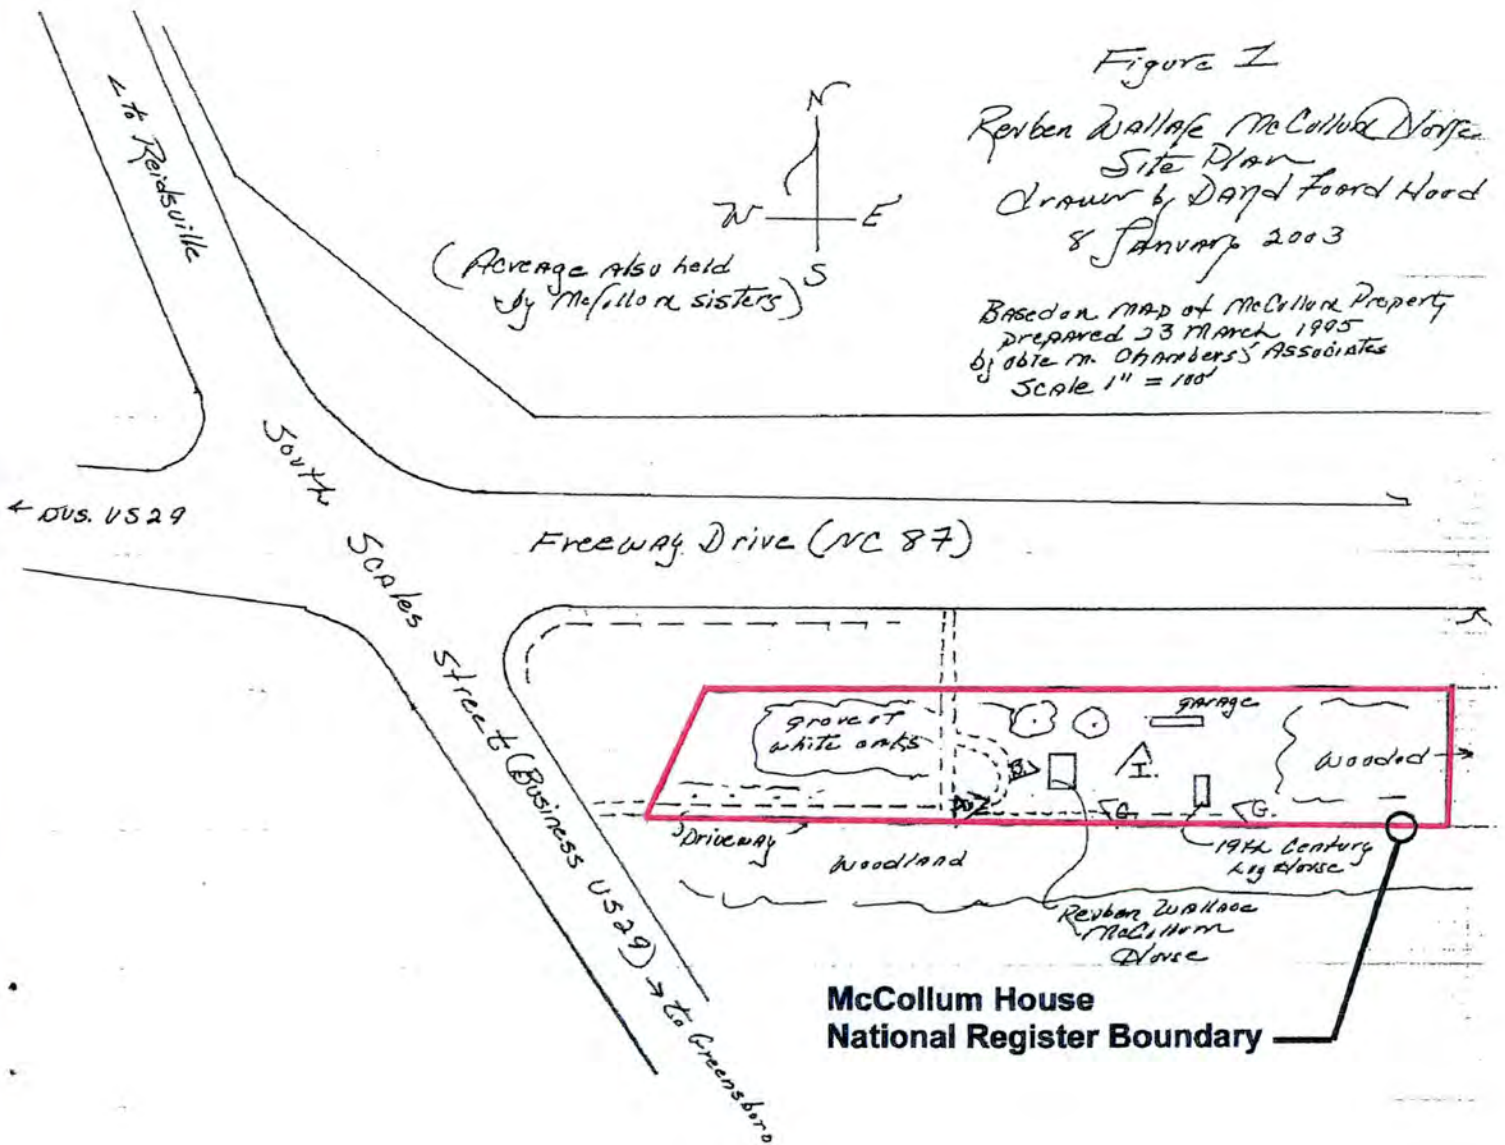 Figure 1
Reuben Wallace McCollum House
Site Plan
drawn by Davyd Foard Hood
8 January 2003
Based on map of McCollum Property
prepared 23 March 1995
by M. Chambers Associates
Scale 1" = 100'
N
W E
S
← to Reidsville
(Acreage also held
by McCollum sisters)
← BUS. US 29
South Scales Street (Business US 29) → to Greensboro
Freeway Drive (NC 87)
grove of
white oaks
garage
wooded →
B.
I.
G.
G.
Driveway
Woodland
19th Century
Log House
Reuben Wallace
McCollum
House
McCollum House
National Register Boundary